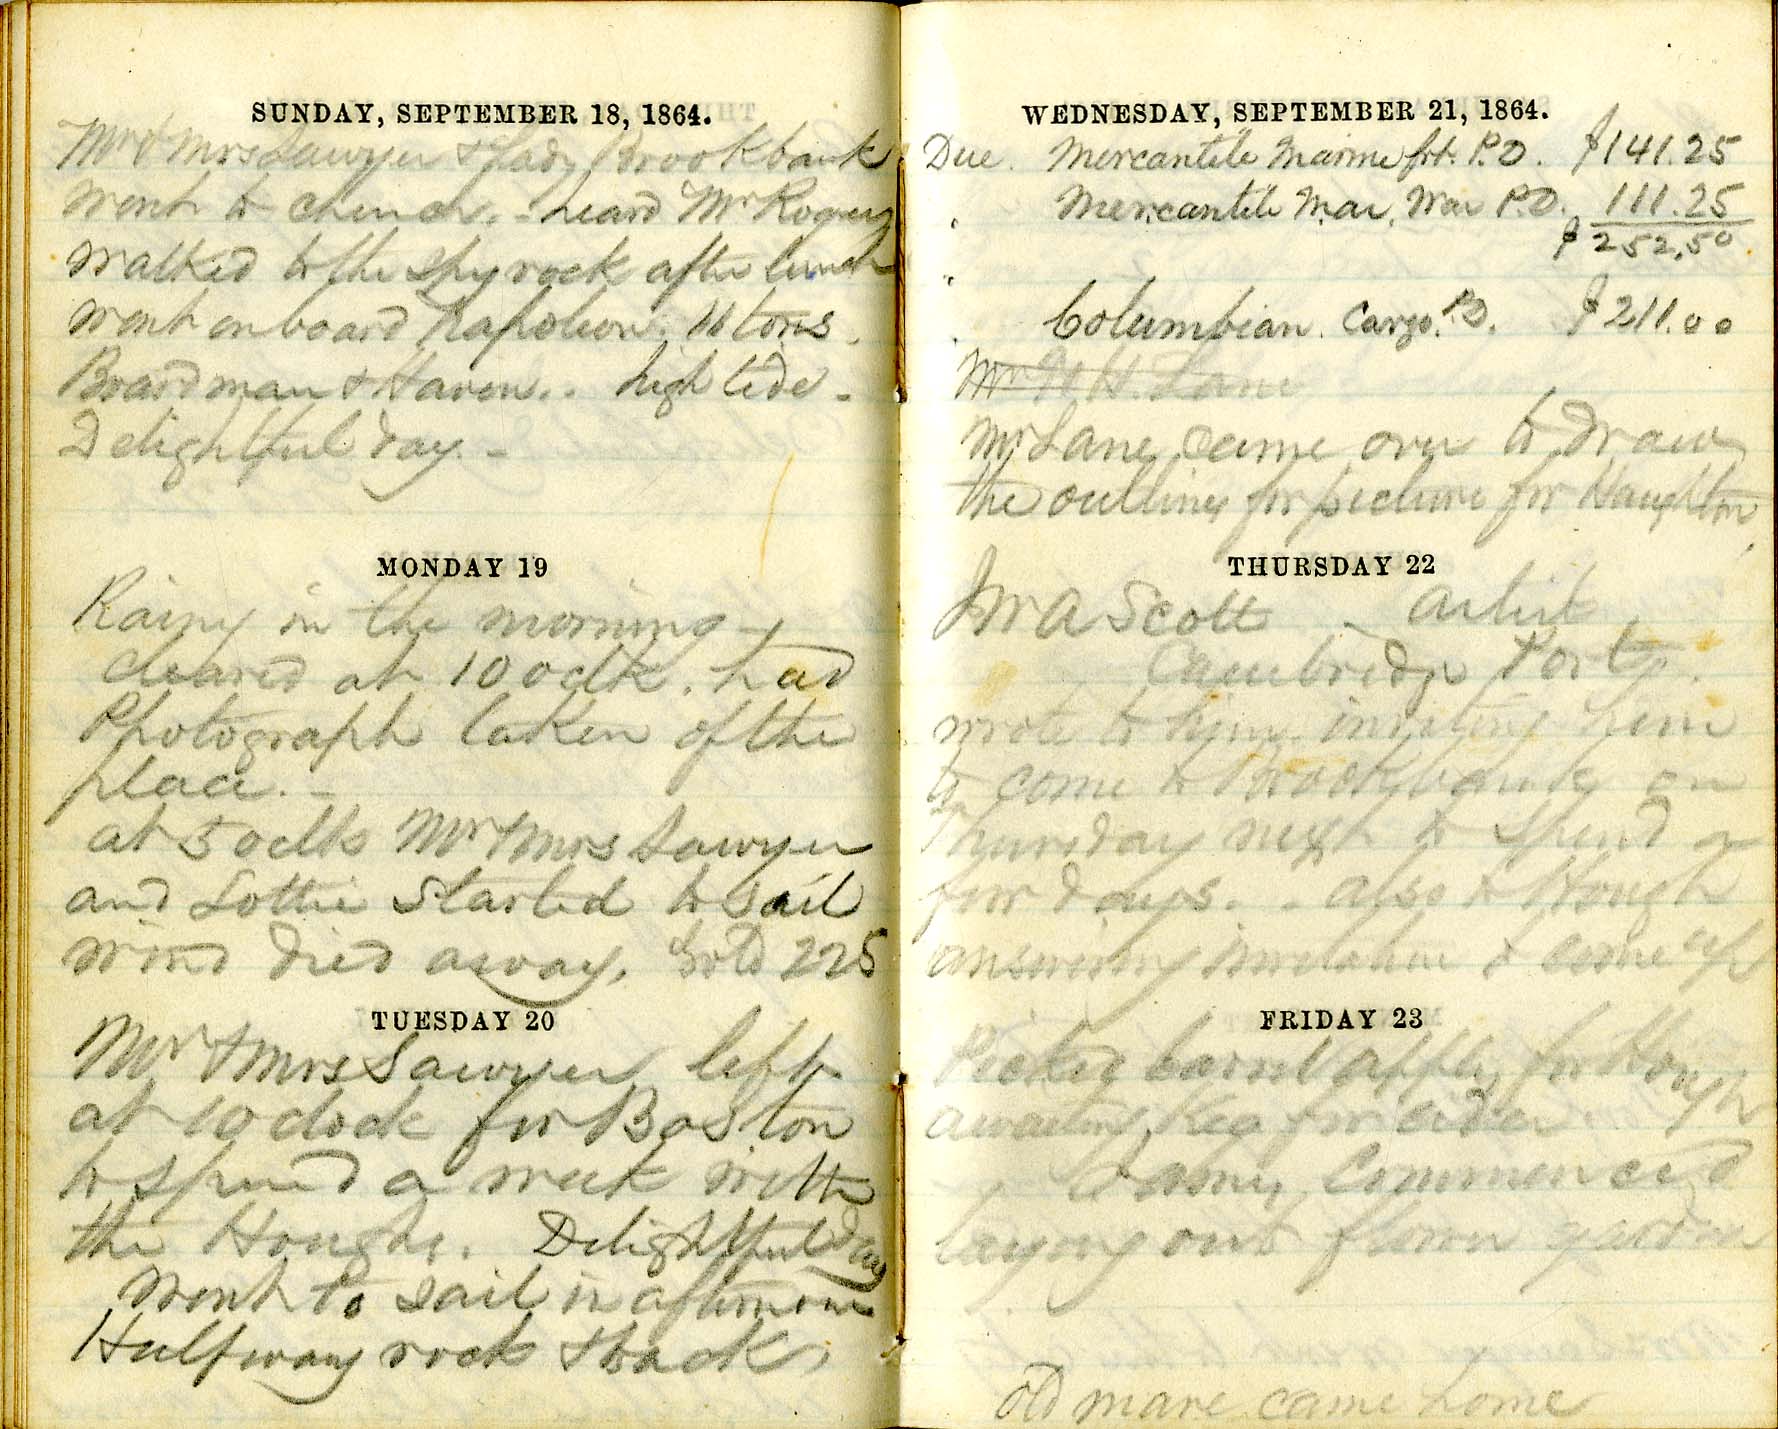 SUNDAY, SEPTEMBER 18, 1864.
Mr & Mrs Sawyer & Lady Brookbank
went to church. - heard Mr Rogers
walked to the Spy rock after lunch
went on board Napoleon. 16 tons.
Boardman & Haven.. high tide -
Delightful day. -
MONDAY 19
Rainy in the morning -
cleared at 10 oclk. had
Photograph taken of the
place. -
at 5 oclk Mr & Mrs Sawyer
and Lottie started to sail
wind died away. Gold 225
TUESDAY 20
Mr & Mrs Sawyer left
at 10 clock for Boston
to spend a week with
the Houghs. Delightful day
Went to sail in afternoon
Halfway rock & back.
WEDNESDAY, SEPTEMBER 21, 1864.
Due. Mercantile Marine frt. P.D. $141.25
" Mercantile Mar, War P.D. 111.25
$252.50
"
" Columbian. Cargo. P.D. $211.00
Mr N. H. Lane
Mr Lane came over to draw
the outlines for picture for Haughton
THURSDAY 22
Jno A Scott - Artist
Cambridge Port.
wrote to him inviting him
to come to Brookbank on
Thursday next to spend a
few days. - also to Hough
answering invitation to come up
FRIDAY 23
Picked barrel apples for Hough
awaiting Keg for cider
Commenced
laying out flower garden
old mare came home